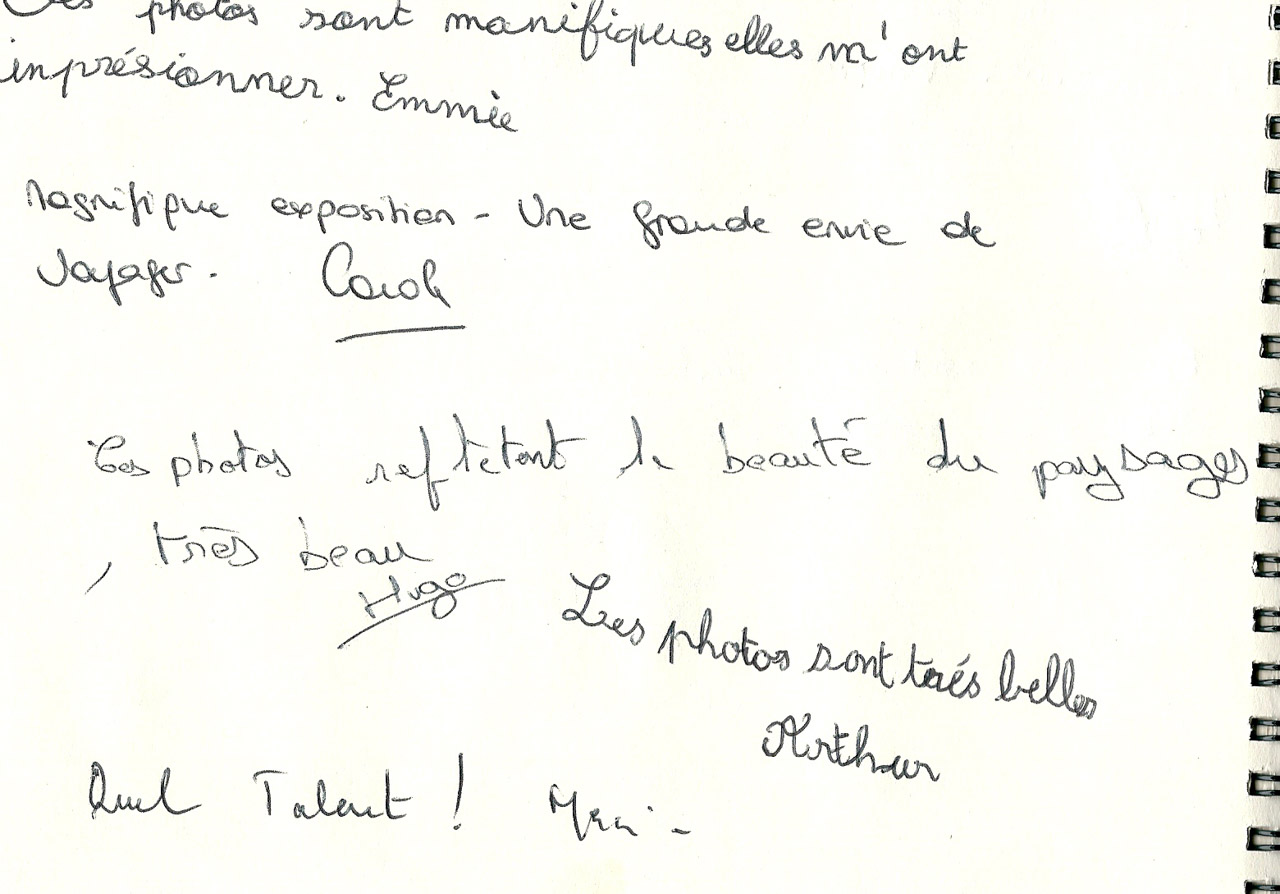 photos sont manifiques elles m'ont
imprésionner. Emmie
Magnifique exposition - Une grande envie de
voyager. Carole
Ces photos refletent la beauté du paysages
, très beau
Hugo
Les photos sont trés belles
Arthur
Quel Talent ! Merci -